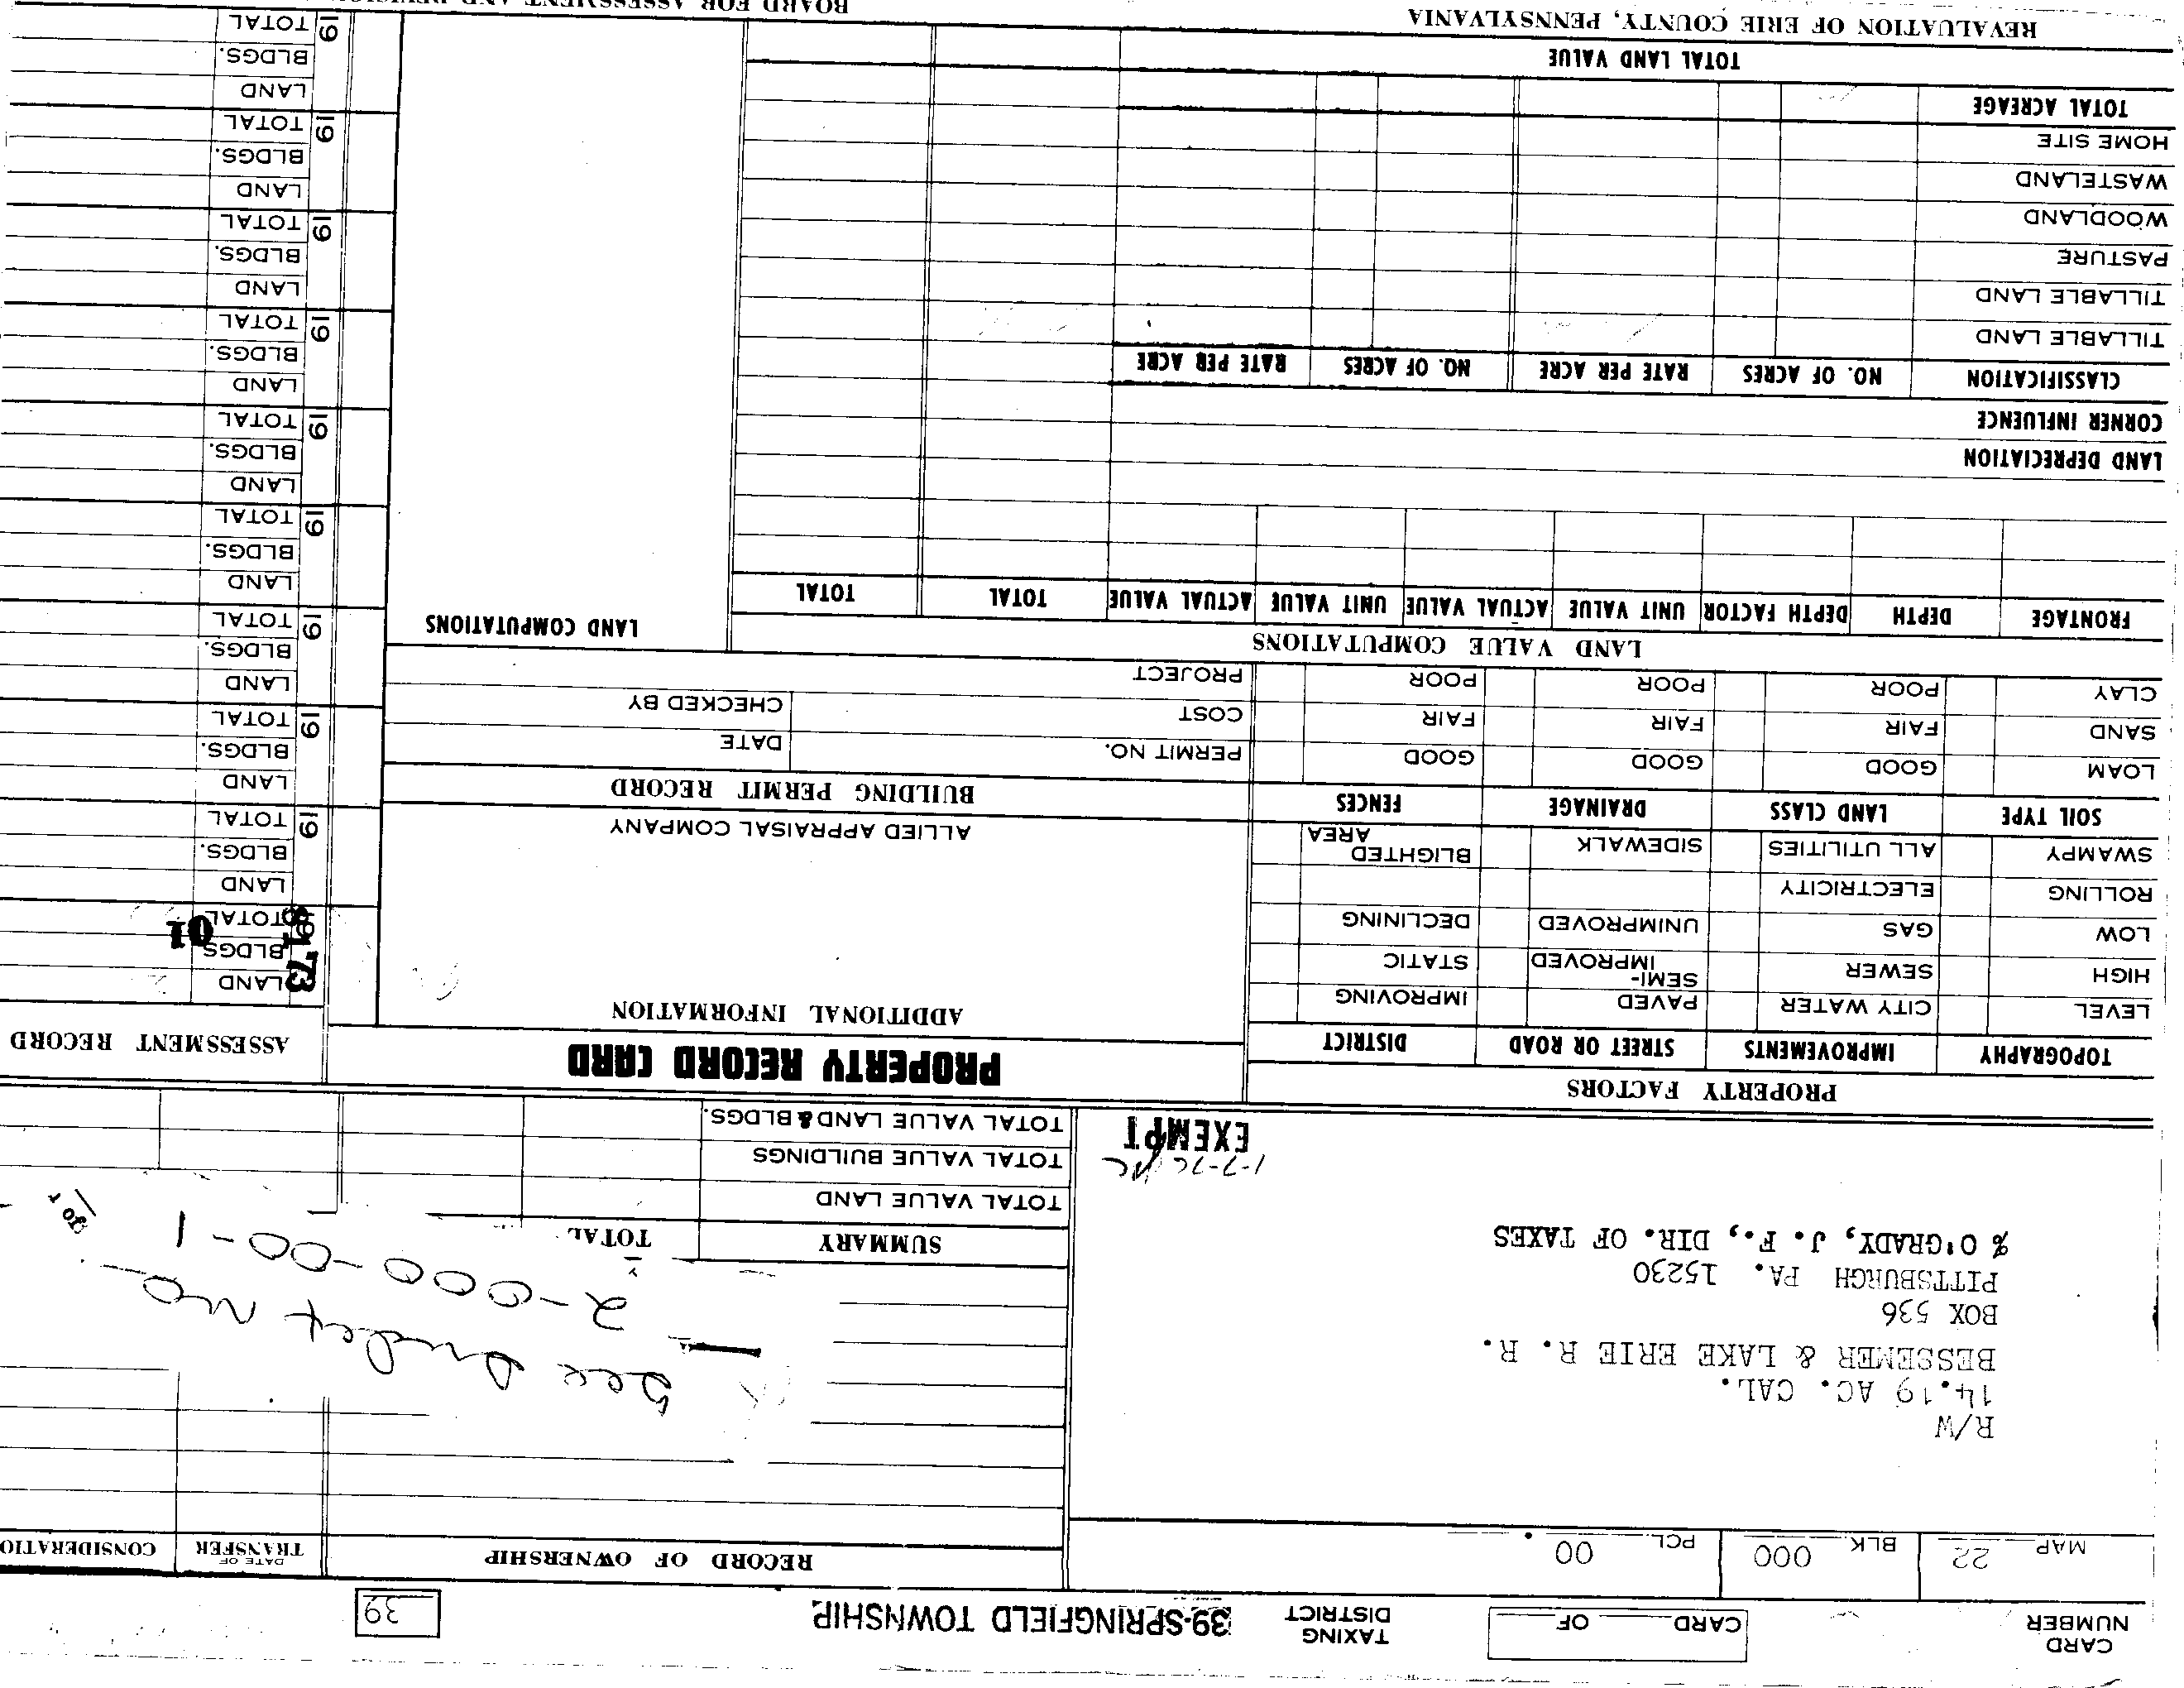 CARD NUMBER
CARD OF
TAXING DISTRICT
39-SPRINGFIELD TOWNSHIP
39
MAP 22 BLK. 000 PCL. 00 .
RECORD OF OWNERSHIP
DATE OF TRANSFER
CONSIDERATIO
R/W
14.19 AC. CAL.
BESSEMER & LAKE ERIE R. R.
BOX 536
PITTSBURGH PA. 15230
% O'GRADY, J. F., DIR. OF TAXES
See Index No
2-000-00-1
for
1-7-76
EXEMPT
SUMMARY TOTAL
TOTAL VALUE LAND
TOTAL VALUE BUILDINGS
TOTAL VALUE LAND & BLDGS.
PROPERTY FACTORS
PROPERTY RECORD CARD
ASSESSMENT RECORD
TOPOGRAPHY IMPROVEMENTS STREET OR ROAD DISTRICT
LEVEL CITY WATER PAVED IMPROVING
HIGH SEWER SEMI-IMPROVED STATIC
LOW GAS UNIMPROVED DECLINING
ROLLING ELECTRICITY
SWAMPY ALL UTILITIES SIDEWALK BLIGHTED AREA
SOIL TYPE LAND CLASS DRAINAGE FENCES
LOAM GOOD GOOD GOOD
SAND FAIR FAIR FAIR
CLAY POOR POOR POOR
ADDITIONAL INFORMATION
ALLIED APPRAISAL COMPANY
BUILDING PERMIT RECORD
PERMIT NO. DATE
COST CHECKED BY
PROJECT
LAND VALUE COMPUTATIONS
LAND COMPUTATIONS
FRONTAGE DEPTH DEPTH FACTOR UNIT VALUE ACTUAL VALUE UNIT VALUE ACTUAL VALUE TOTAL TOTAL
LAND DEPRECIATION
CORNER INFLUENCE
CLASSIFICATION NO. OF ACRES RATE PER ACRE NO. OF ACRES RATE PER ACRE
TILLABLE LAND
TILLABLE LAND
PASTURE
WOODLAND
WASTELAND
HOME SITE
TOTAL ACREAGE
TOTAL LAND VALUE
REVALUATION OF ERIE COUNTY, PENNSYLVANIA
BOARD FOR ASSESSMENT AND REVISION
73
01
LAND
BLDGS.
TOTAL
19
LAND
BLDGS.
TOTAL
19
LAND
BLDGS.
TOTAL
19
LAND
BLDGS.
TOTAL
19
LAND
BLDGS.
TOTAL
19
LAND
BLDGS.
TOTAL
19
LAND
BLDGS.
TOTAL
19
LAND
BLDGS.
TOTAL
19
LAND
BLDGS.
TOTAL
19
LAND
BLDGS.
TOTAL